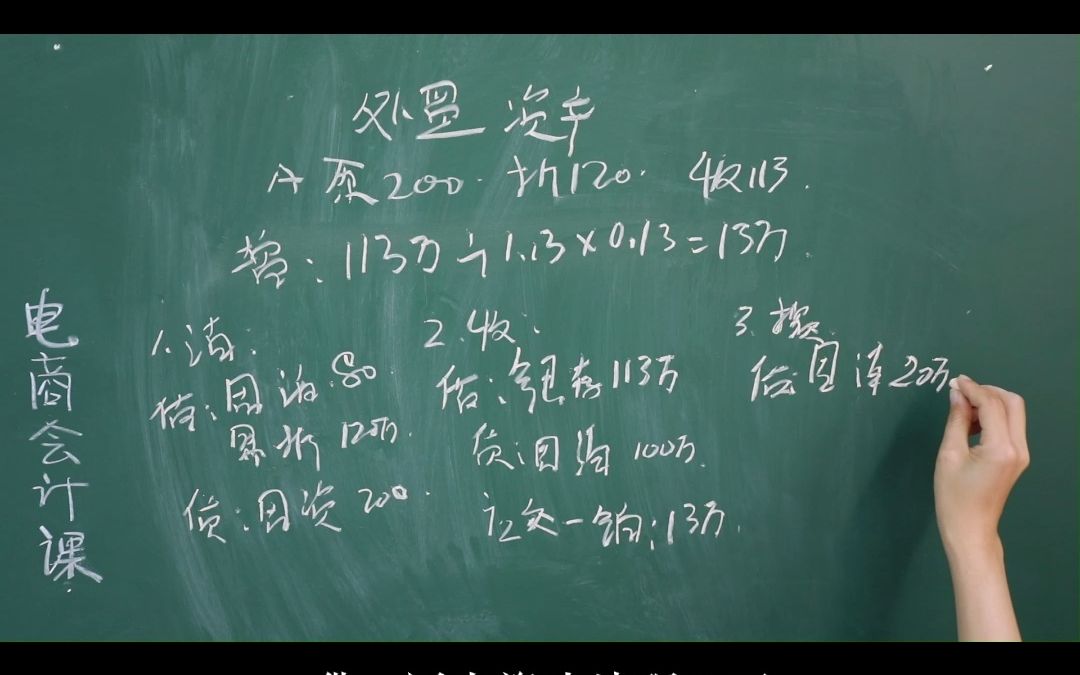 处置资产
A 原200. 折120. 收113.
增：113万÷1.13×0.13=13万.
1.清.
借：固清.80
累折120万.
贷：固资200.
2.收.
借：银存113万
贷：固清100万.
应交一销：13万.
3.损
借：固清20万
电商会计课